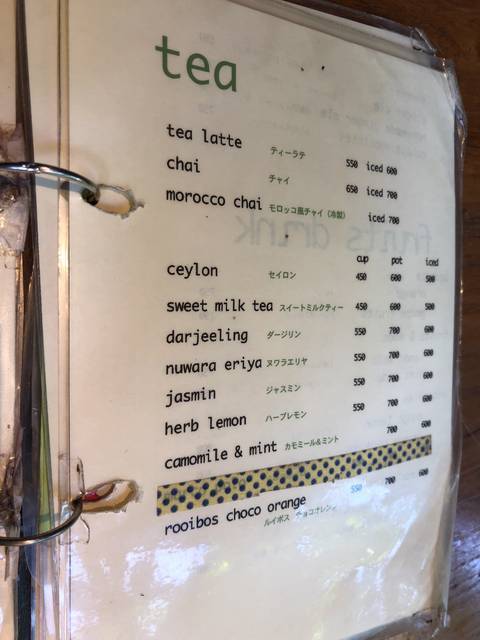 tea
tea latte ティーラテ 550 iced 600
chai チャイ 650 iced 700
morocco chai モロッコ風チャイ（冷製） iced 700
cup pot iced
ceylon セイロン 450 600 500
sweet milk tea スイートミルクティー 450 600 500
darjeeling ダージリン 550 700 600
nuwara eriya ヌワラエリヤ 550 700 600
jasmin ジャスミン 550 700 600
herb lemon ハーブレモン 550 700 600
camomile & mint カモミール&ミント 700 600
rooibos choco orange ルイボス チョコオレンジ 550 700 600